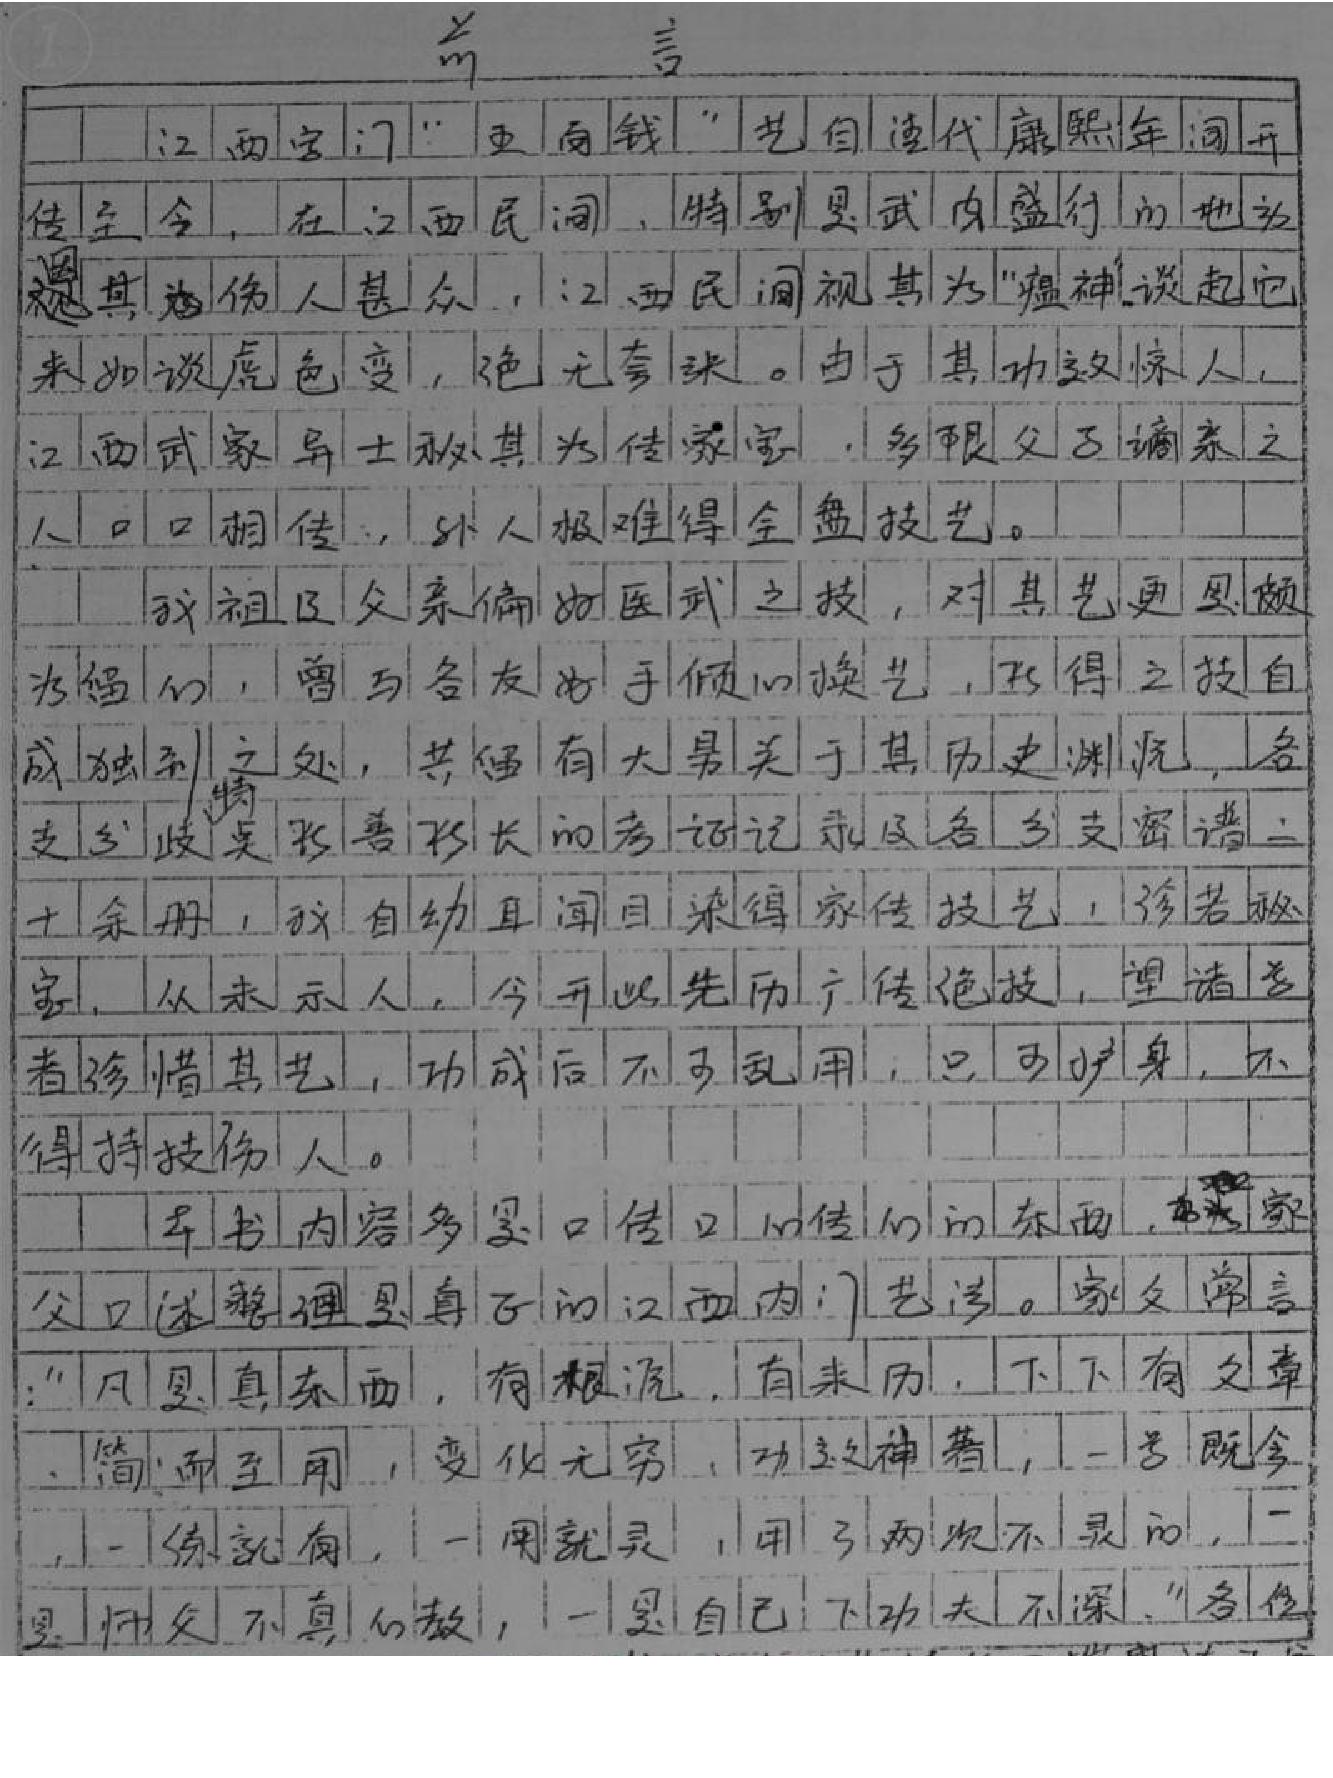 前言
江西字门"五百钱"艺自清代康熙年间开
传至今,在江西民间,特别是武风盛行的地方
因其伤人甚众,江西民间视其为"瘟神"谈起它
来如谈虎色变,绝无夸张。由于其功效惊人,
江西武家异士秘其为传家宝,多限父子嫡亲之
人口口相传,外人极难得全盘技艺。
我祖及父亲偏好医武之技,对其艺更是颇
为倾心,曾与各友好手倾心换艺,所得之技自
成独到之处,共留有大量关于其历史渊沅,各
支分歧特点所善所长的考证记录及各分支密谱二
十余册,我自幼耳闻目染得家传技艺,珍若秘
宝,从未示人,今开此先历广传绝技,望诸学
者珍惜其艺,功成后不可乱用,只可护身,不
得持技伤人。
本书内容多是口传口心传心的东西,家
父口述整理是真正的江西内门艺法。家父常言
:"凡是真东西,有根沅,有来历,下下有文章
,简而至用,变化无穷,功效神著,一号既会
,一练就有,一用就灵,用了两次不灵的,一
是师父不真心教,一是自己下功夫不深."各位